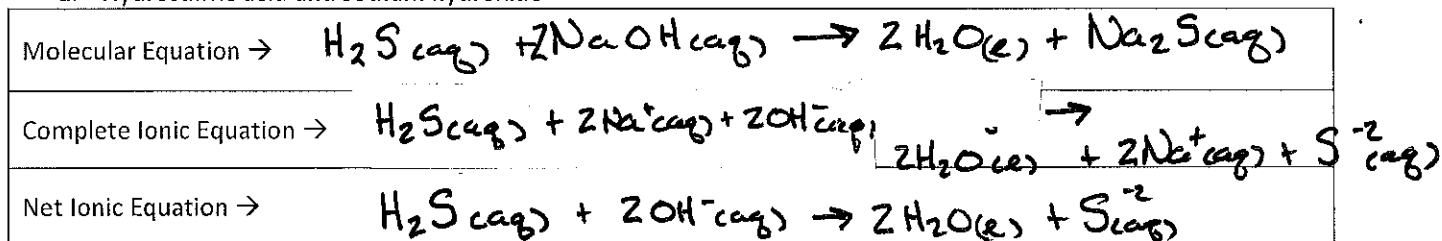 Molecular Equation → H₂S(aq) + 2NaOH(aq) → 2H₂O(l) + Na₂S(aq)
Complete Ionic Equation → H₂S(aq) + 2Na⁺(aq) + 2OH⁻(aq) → 2H₂O(l) + 2Na⁺(aq) + S⁻²(aq)
Net Ionic Equation → H₂S(aq) + 2OH⁻(aq) → 2H₂O(l) + S⁻²(aq)